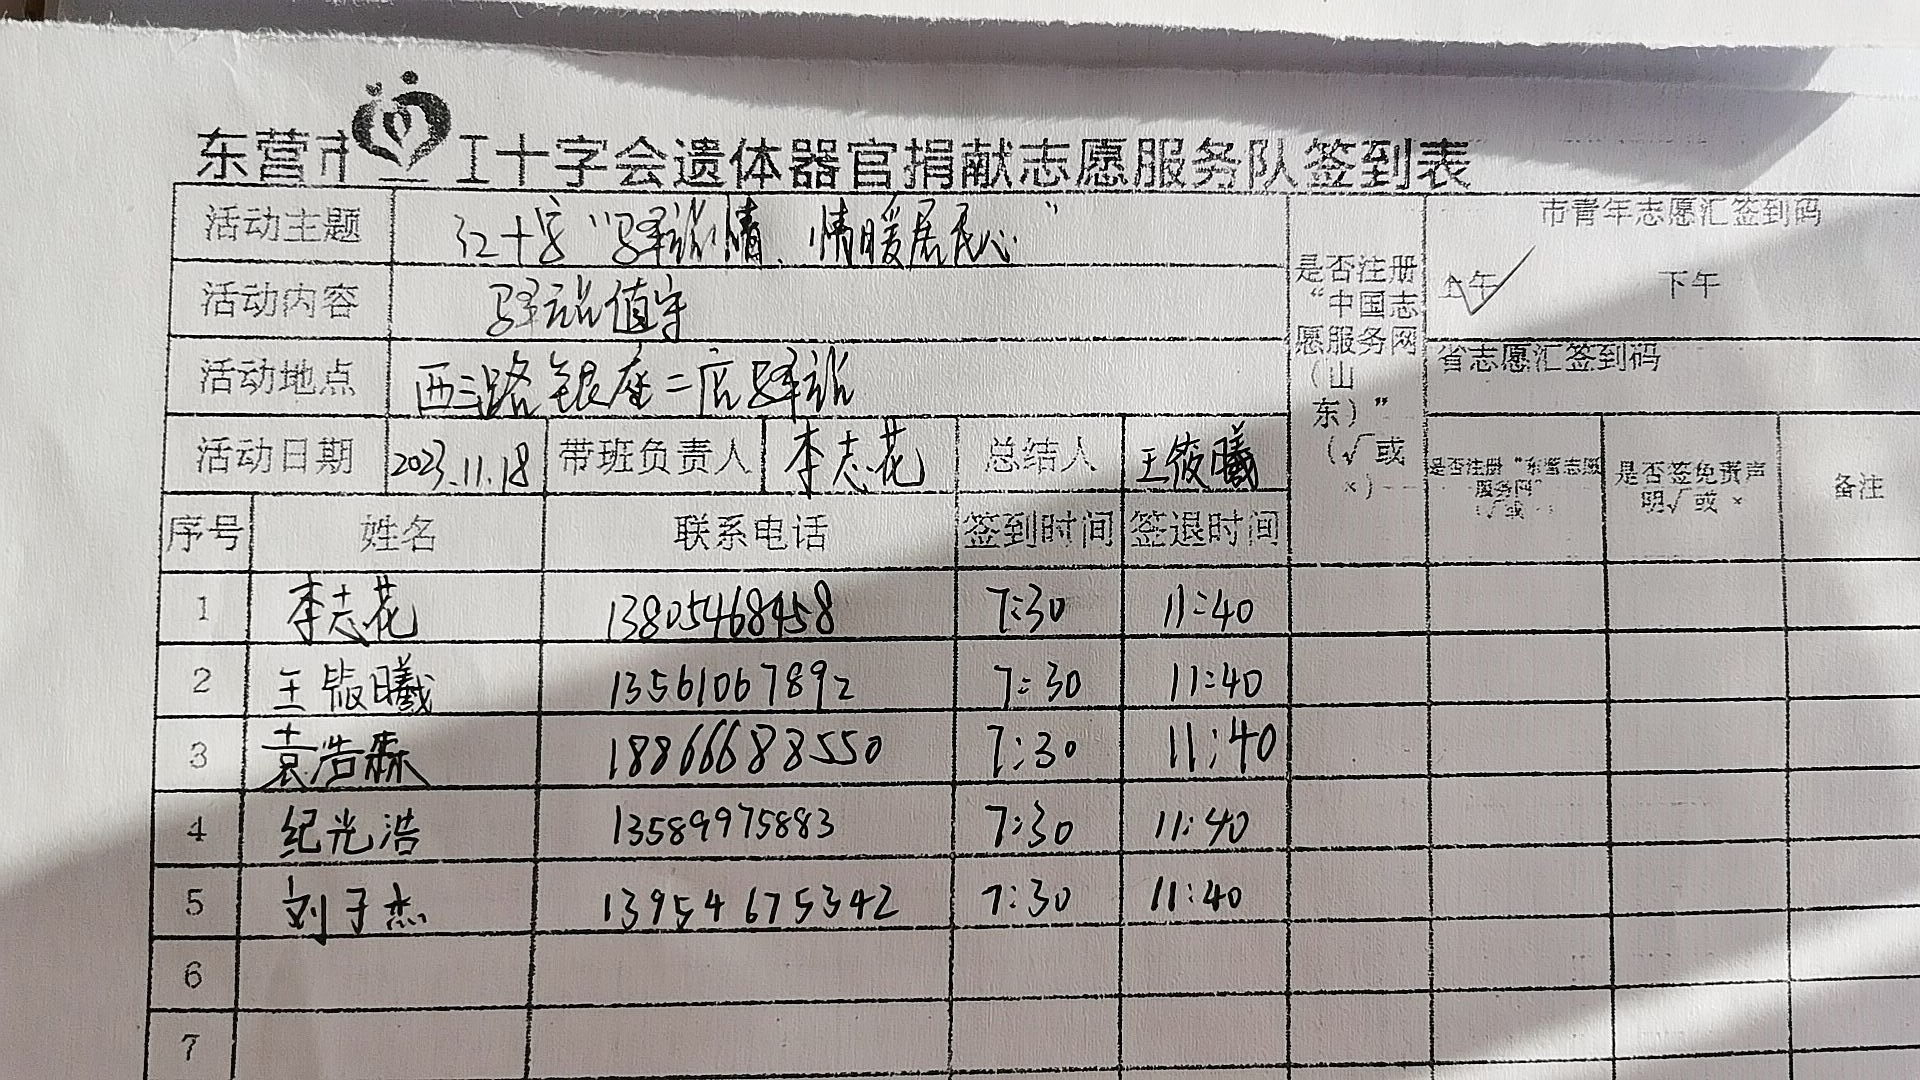 东营市红十字会遗体器官捐献志愿服务队签到表
活动主题 红十字“驿站情、情暖居民心” 是否注册“中国志愿服务网（山东）”（√或×） 市青年志愿汇签到码
上午 √ 下午
活动内容 驿站值守
省志愿汇签到码
活动地点 西三路银座二店驿站
活动日期 2023.11.18 带班负责人 李志花 总结人 王筱曦 是否注册“东营志愿服务网” 是否签免责声明√或× 备注
序号 姓名 联系电话 签到时间 签退时间
1 李志花 13805468458 7:30 11:40
2 王筱曦 13561067892 7:30 11:40
3 袁浩森 18866688550 7:30 11:40
4 纪光浩 13589975883 7:30 11:40
5 刘子杰 13954675342 7:30 11:40
6
7